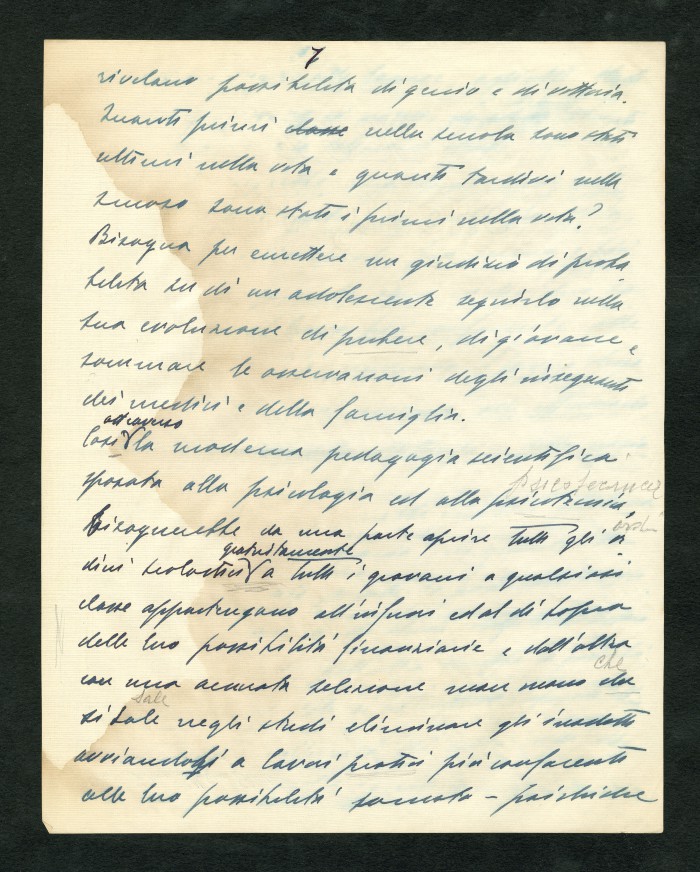 7
rivelano possibilità di genio e di vittoria.
Quanti primi classe nella scuola sono stati
ultimi nella vita e quanti tardivi nella
scuola sono stati i primi nella vita?
Bisogna per emettere un giudizio di proba
bilità su di un adolescente seguirlo nella
sua evoluzione di pubere, di giovane e
sommare le osservazioni degli insegnanti
dei medici e della famiglia.
attraverso
Così la moderna pedagogia scientifica
psicotecnica
sposata alla psicologia ed alla psicotecnica
ordi
Bisognerebbe da una parte aprire tutti gli or
gratuitamente
dini scolastici a tutti i giovani a qualsiasi
classe appartengano all'infuori ed al di sopra
delle loro possibilità finanziarie e dall'altra
che
con una accurata selezione man mano che
sale
si sale negli studi eliminare gli inadatti
avviandoli a lavori pratici più confacenti
alle loro possibilità somato-psichiche